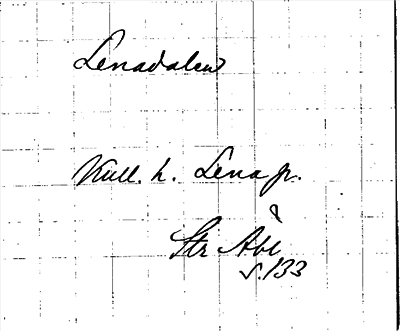 Lenadalen
Kull. h. Lena p.
Str Abl
s. 133